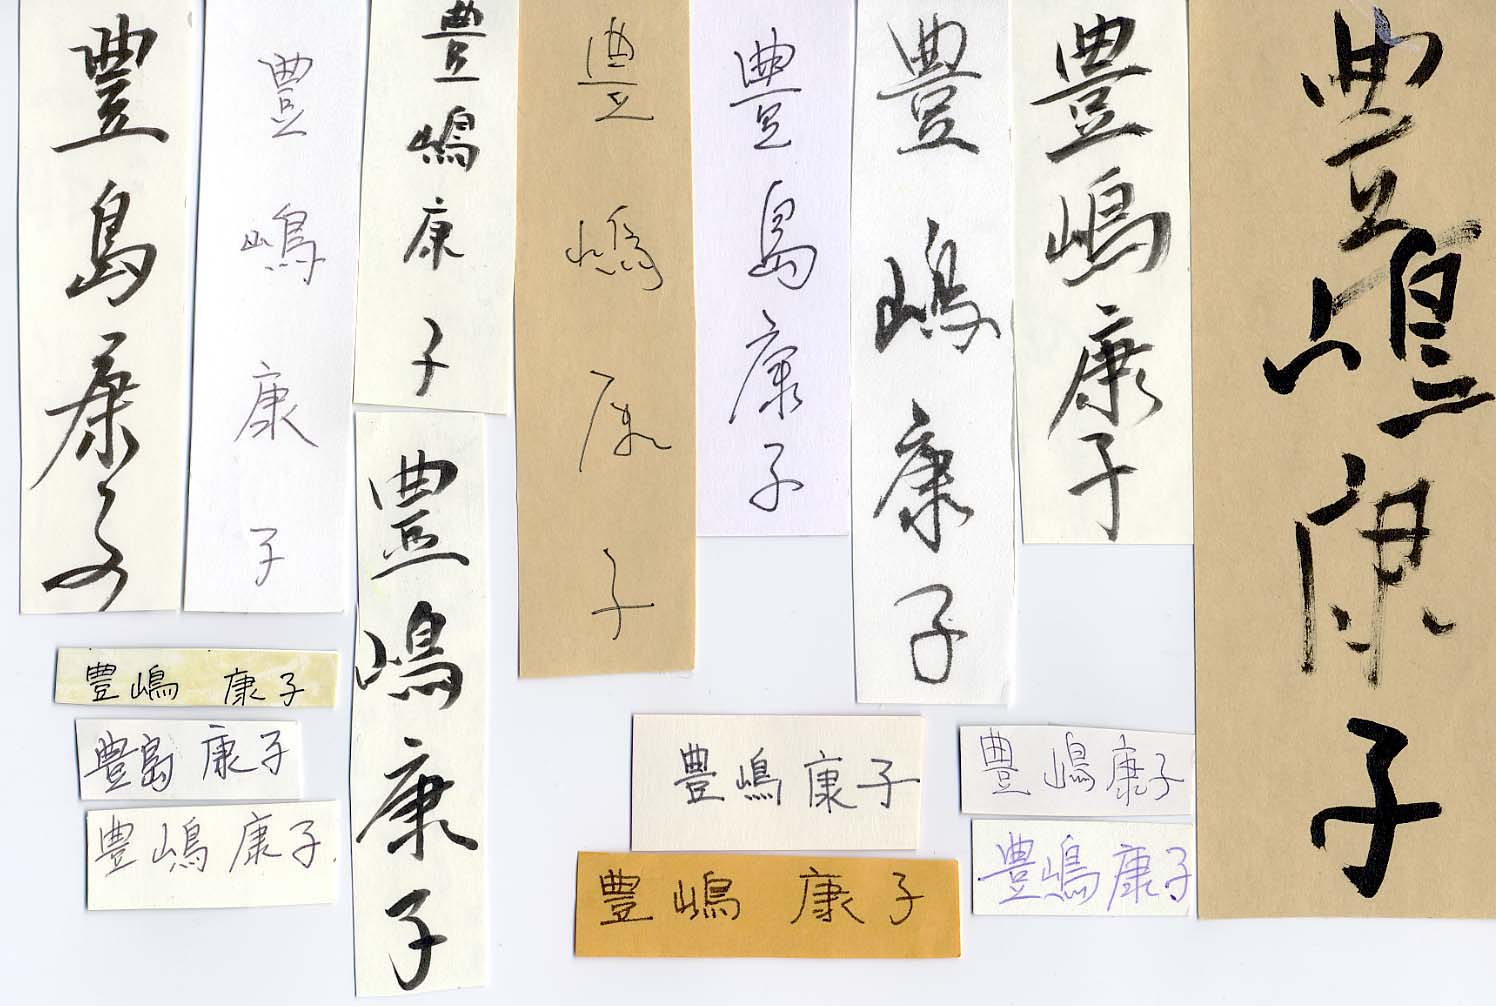 豊島康子
豊嶋康子
豊嶋康子
豊嶋康子
豊島康子
豊嶋康子
豊嶋康子
豊嶋康子
豊嶋康子
豊嶋 康子
豊島 康子
豊嶋 康子
豊嶋 康子
豊嶋 康子
豊嶋康子
豊嶋康子